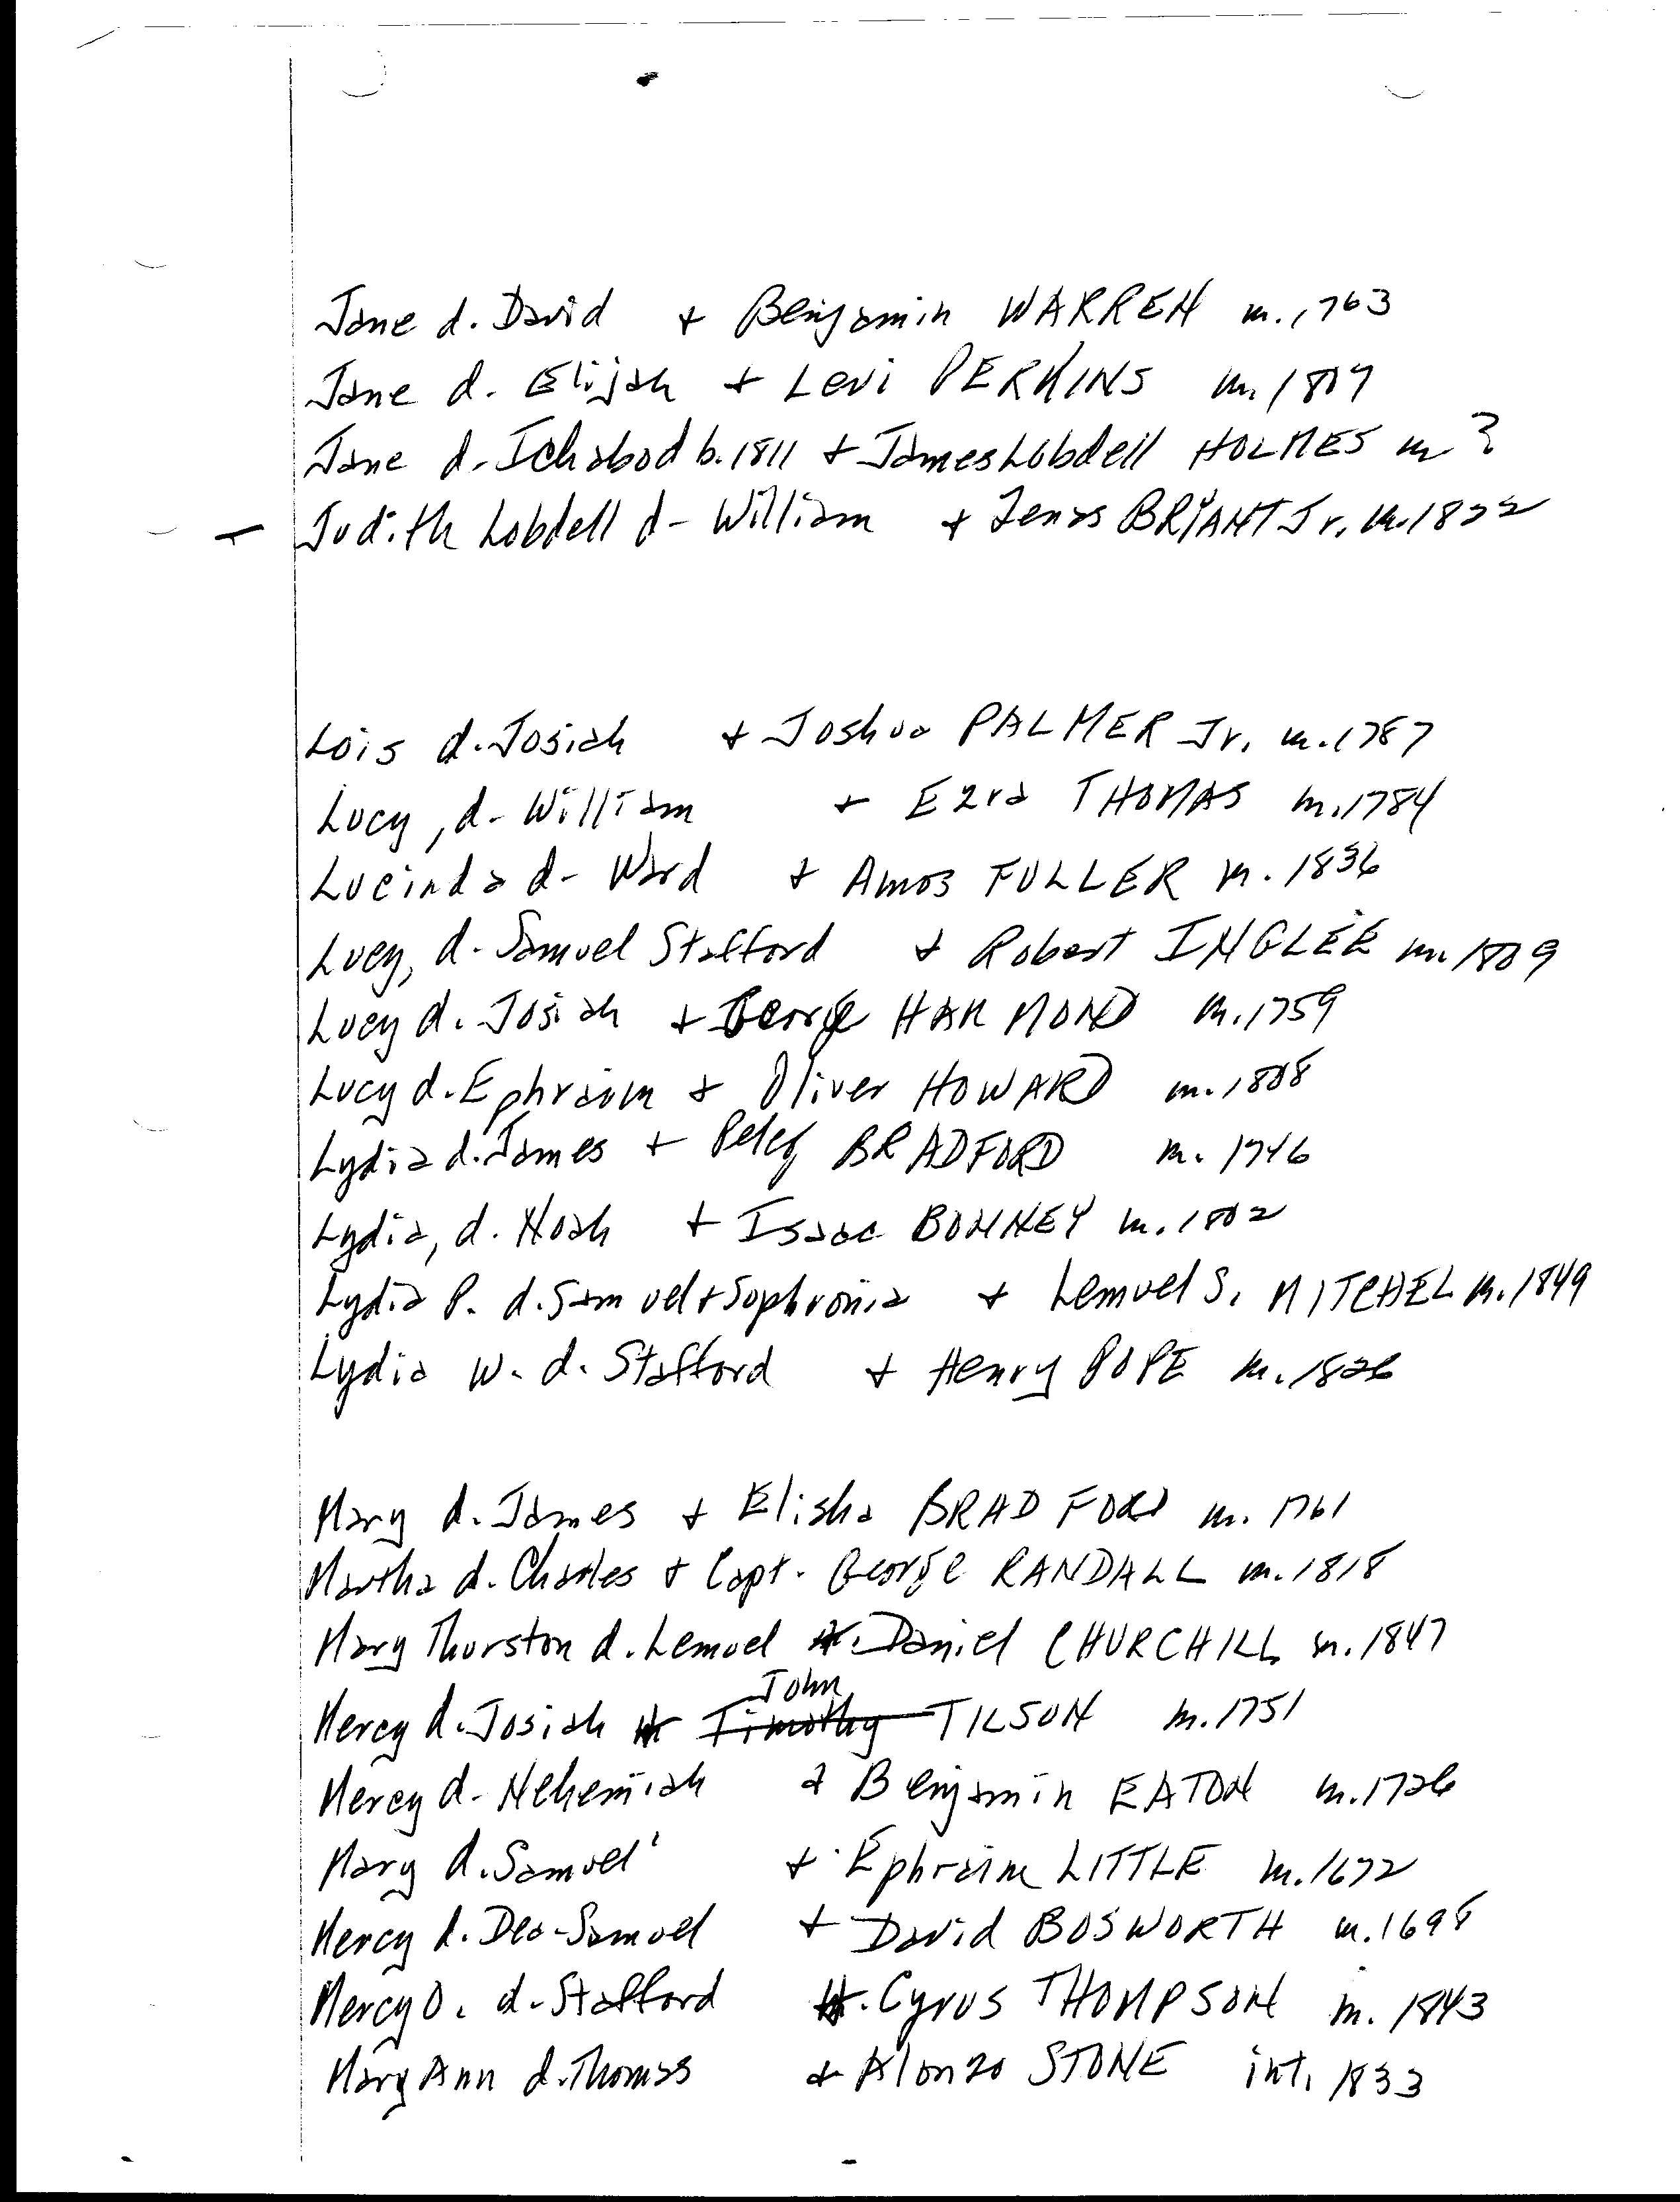 Jane d. David + Benjamin WARREN m. 1763
Jane d. Elijah + Levi PERKINS m. 1807
Jane d. Ichabod b. 1811 + James Lobdell HOLMES m ?
- Judith Lobdell d- William + Zenas BRYANT Jr. m. 1822
Lois d. Josiah + Joshua PALMER Jr. m. 1787
Lucy, d- William + Ezra THOMAS m. 1784
Lucinda d- Ward + Amos FULLER m. 1836
Lucy, d. Samuel Stafford + Robert INGLEE m. 1809
Lucy d. Josiah + George HAMMOND m. 1759
Lucy d. Ephraim + Oliver HOWARD m. 1808
Lydia d. James + Peleg BRADFORD m. 1746
Lydia, d. Noah + Isaac BONNEY m. 1802
Lydia P. d. Samuel + Sophronia + Lemuel S. MITCHEL m. 1849
Lydia W. d. Stafford + Henry POPE m. 1826
Mary d. James + Elisha BRADFORD m. 1761
Martha d. Charles + Capt. George RANDALL m. 1818
Mary Thurston d. Lemuel +. Daniel CHURCHILL m. 1847
John
Mercy d. Josiah + Timothy TILSON m. 1751
Mercy d- Nehemiah + Benjamin EATON m. 1726
Mary d. Samuel + Ephraim LITTLE m. 1672
Mercy d. Dea-Samuel + David BOSWORTH m. 1698
Mercy O. d- Stafford +. Cyrus THOMPSON m. 1843
Mary Ann d. Thomas + Alonzo STONE int. 1833